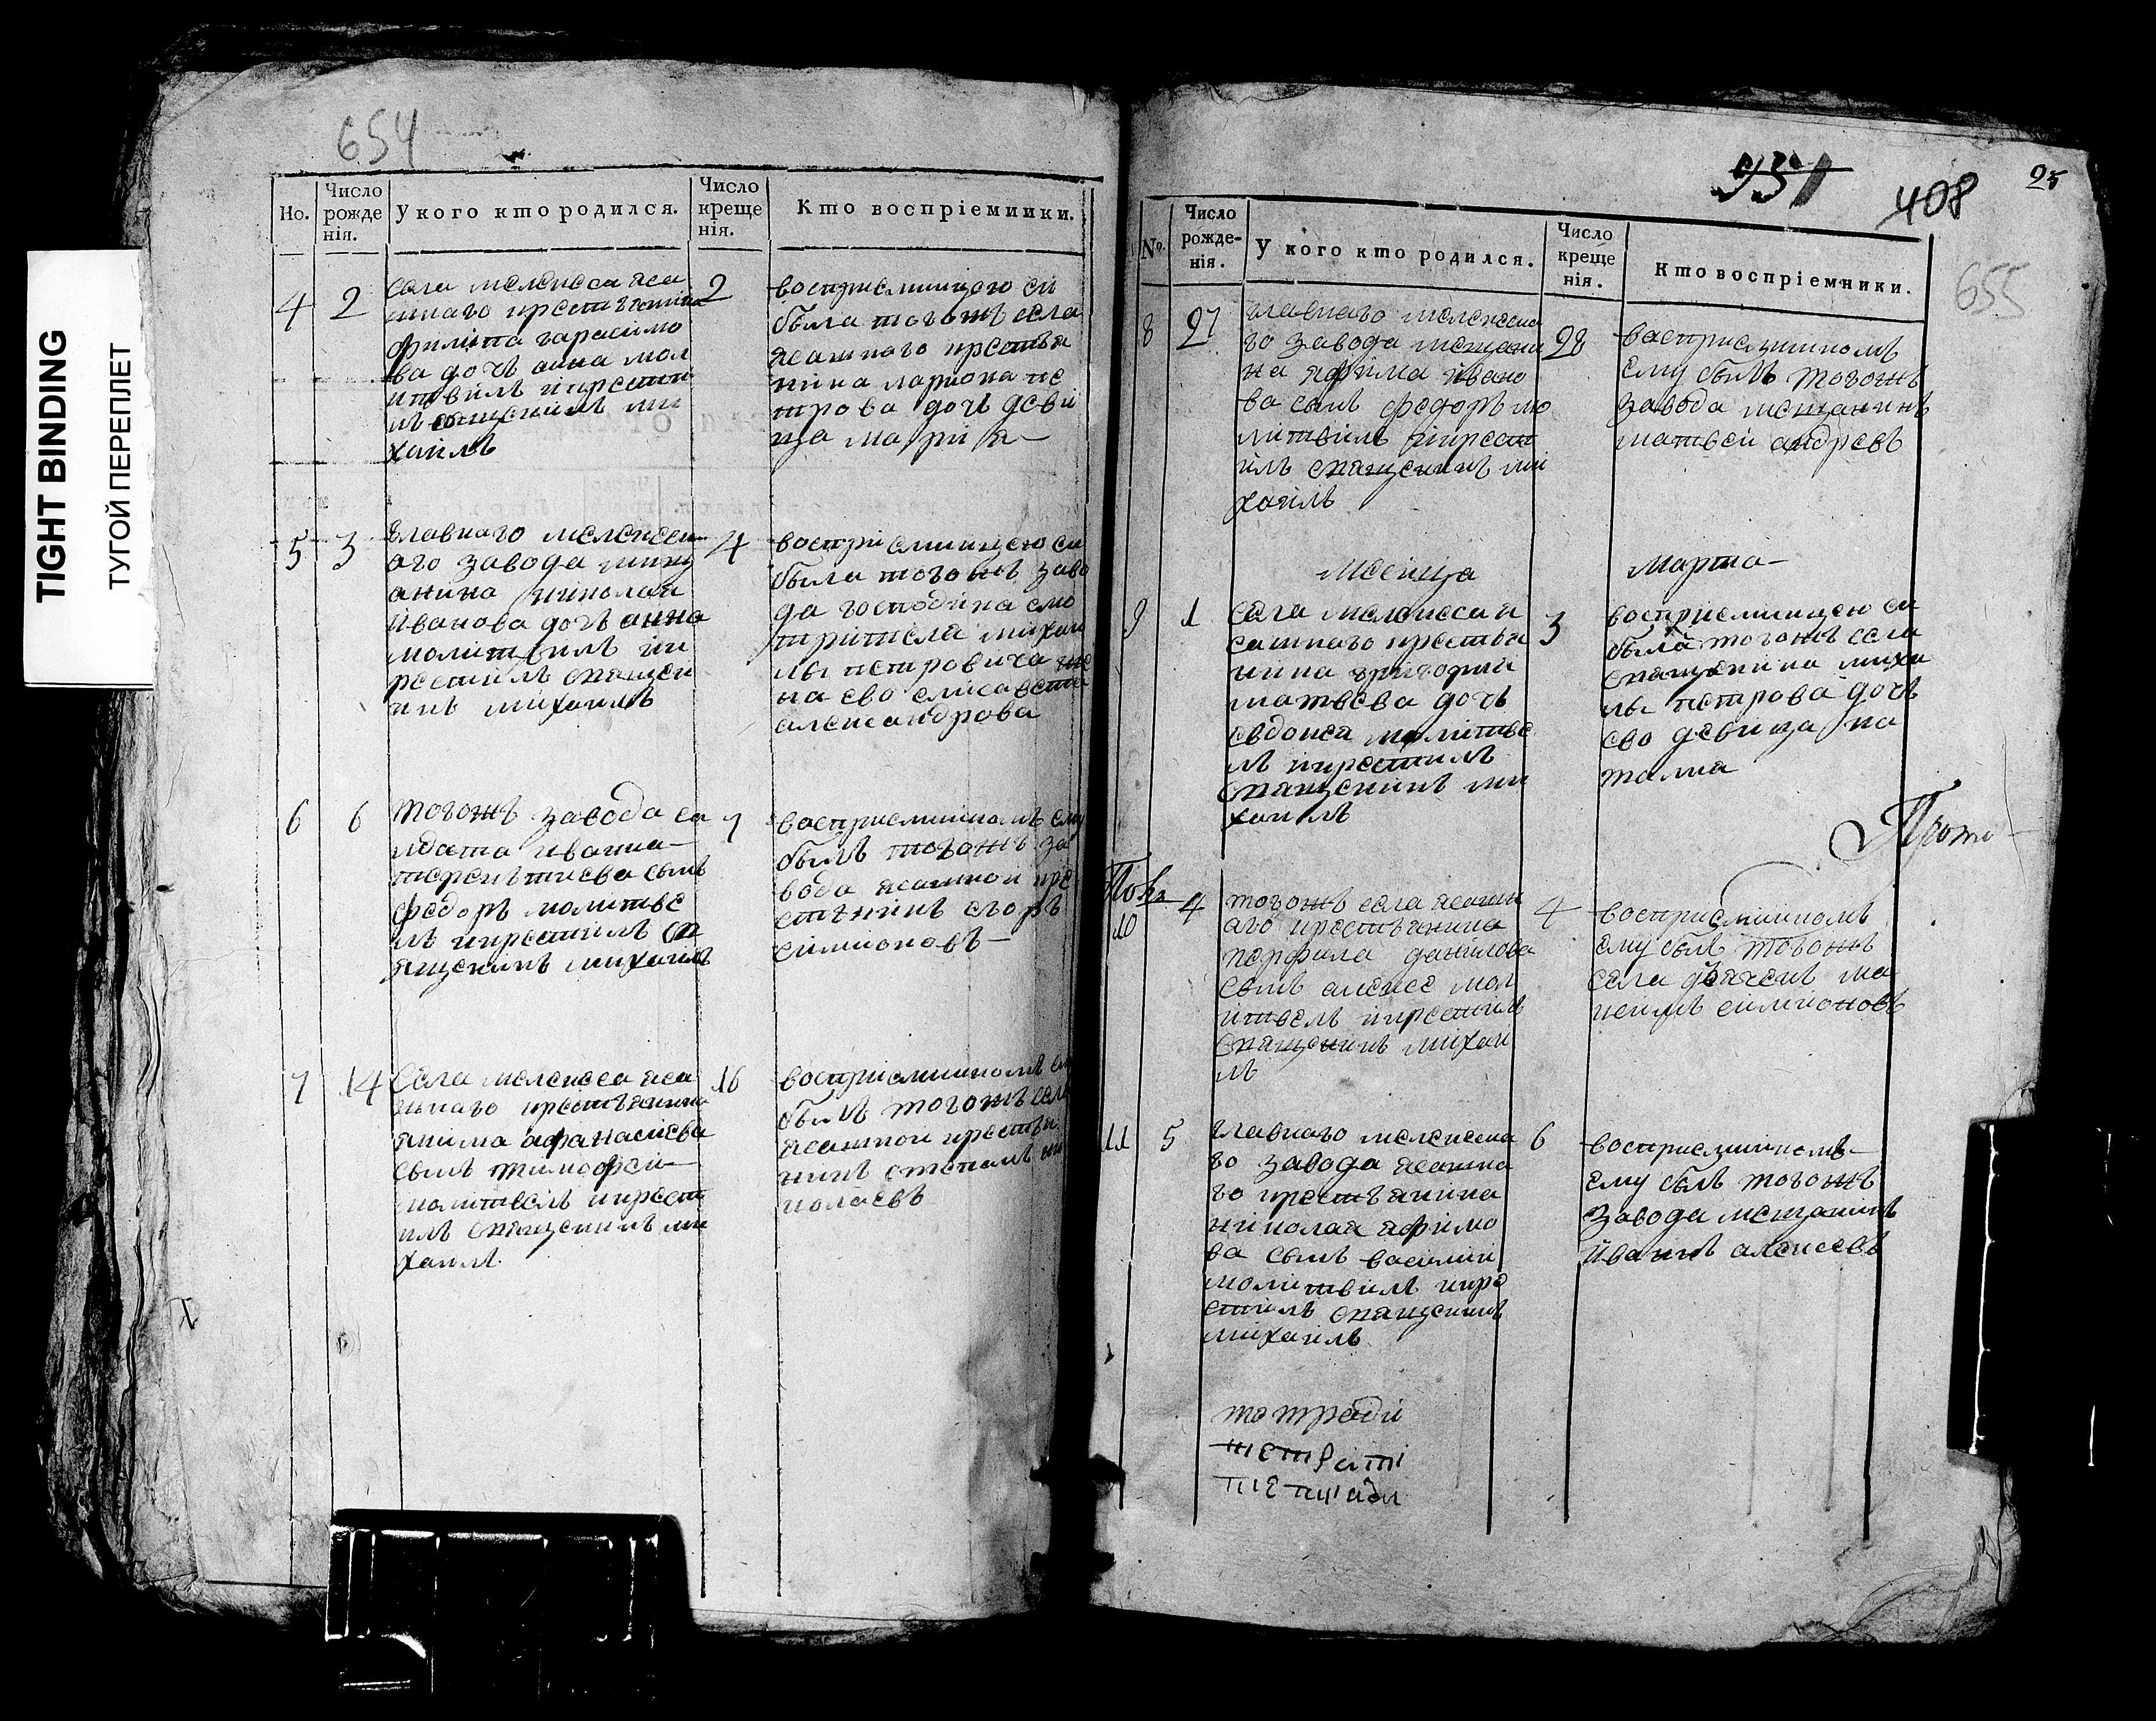 TIGHT BINDING
ТУГОЙ ПЕРЕПЛЕТ
654
Но.
Число рожде нія.
У кого кто родился.
Число креще нія.
Кто воспріемники.
4 2
села мелекеса яса
шнаго крестъянина
филипа гарасимо
ва дочь анна мол
итвилъ икрестил
лъ священикъ ми
хаилъ
2
восприемницою еи
была тогожъ села
ясашнаго крестья
нина лариона пе
трова дочь деви
ца мария
5 3
главнаго мелекеск
аго завода мищ
анина николая
иванова дочь анна
молитвилъ ик
рестилъ священ
икъ михаилъ
4
восприемницею еи
была тогожъ заво
да господина смо
трителя михаи
лы петровича же
на ево елисавета
александрова
6 6
тогожъ завода со
лдата ивана
терентиева сынъ
федоръ молитве
лъ икрестилъ св
ященикъ михаилъ
7
восприемникомъ ему
былъ тогожъ за
вода ясашной кре
стьнинъ егоръ
симионовъ
7 14
Села мелекеса яса
шнаго крестьянина
якима афанасиева
сынъ тимофеи
молитвелъ икрест
илъ священикъ ми
хаилъ
16
восприемникомъ
былъ тогожъ села
ясашнои крестья
нинъ степанъ ни
колаевъ
931
408
25
655
№.
Число рожде- нія.
У кого кто родился.
Число креще нія.
Кто воспріемники.
8 27
главнаго мелекеска
го завода мещани
на яфима ивано
ва сынъ федоръ мо
литвилъ икрест
илъ священикъ ми
хаилъ
28
восприемникомъ
ему былъ тогожъ
завода мещанинъ
матвеи андревъ
Месица Марта
9 1
села мелекеса я
сашнаго крестья
нина григория
матвева дочь
евдокея молитве
лъ икрестилъ
священикъ ми
хаилъ
3
восприемницею еи
была тогожъ села
священика михаи
лы петрова дочь
ево девица на
талия
Прото
10 4
тогожъ села ясашн
аго крестьянина
перфила данилова
сынъ алексе мол
итвелъ икрестилъ
священикъ михаи
лъ
4
восприемникомъ
ему былъ тогожъ
села дьячекъ ма
ксимъ симионовъ
11 5
главнаго мелекеска
го завода ясашна
го крестьянина
николая яфимо
ва сынъ василии
молитвилъ икре
стилъ священикъ
михаилъ
6
восприемникомъ
ему былъ тогожъ
завода мещанинъ
иванъ алексеевъ